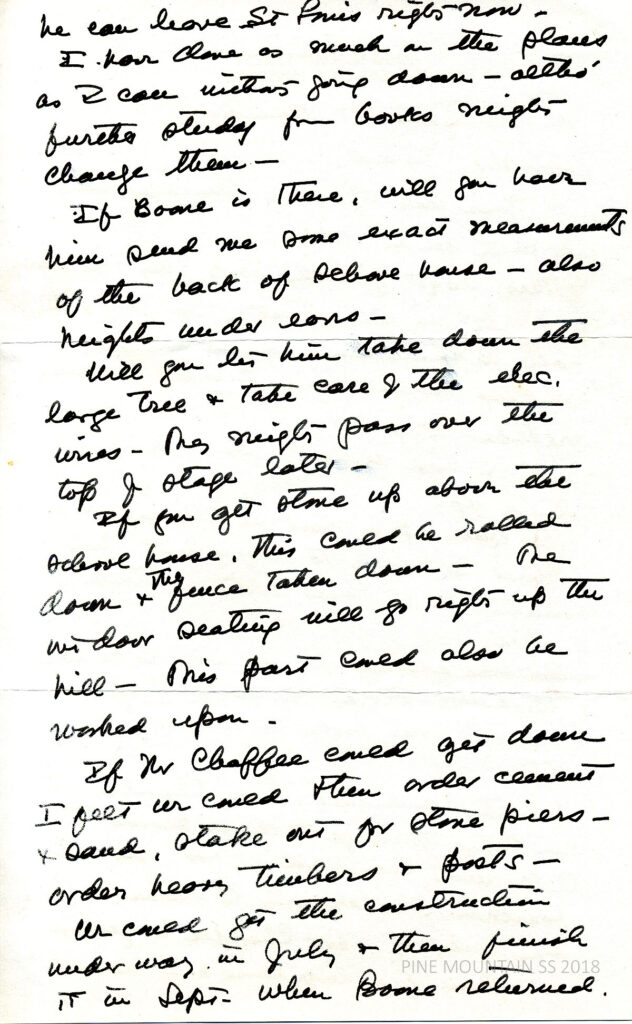 he can leave St Louis right now -
I have done as much on the plans
as I can without going down - altho'
further study from books might
change them -
If Boone is there, will you have
him send me some exact measurements
of the back of school house - also
heights under eaves -
Will you let him take down the
large tree & take care of the elec.
wires - They might pass over the
top of stage later -
If you get stone up above the
school house, this could be rolled
down & the fence taken down - The
outdoor seating will go right up the
hill - This part could also be
worked upon.
If Mr Chaffee could get down
I feel we could then order cement
& sand, stake out for stone piers -
order heavy timbers & posts -
We could get the construction
under way in July & then finish
it in Sept - when Boone returned.
PINE MOUNTAIN SS 2018